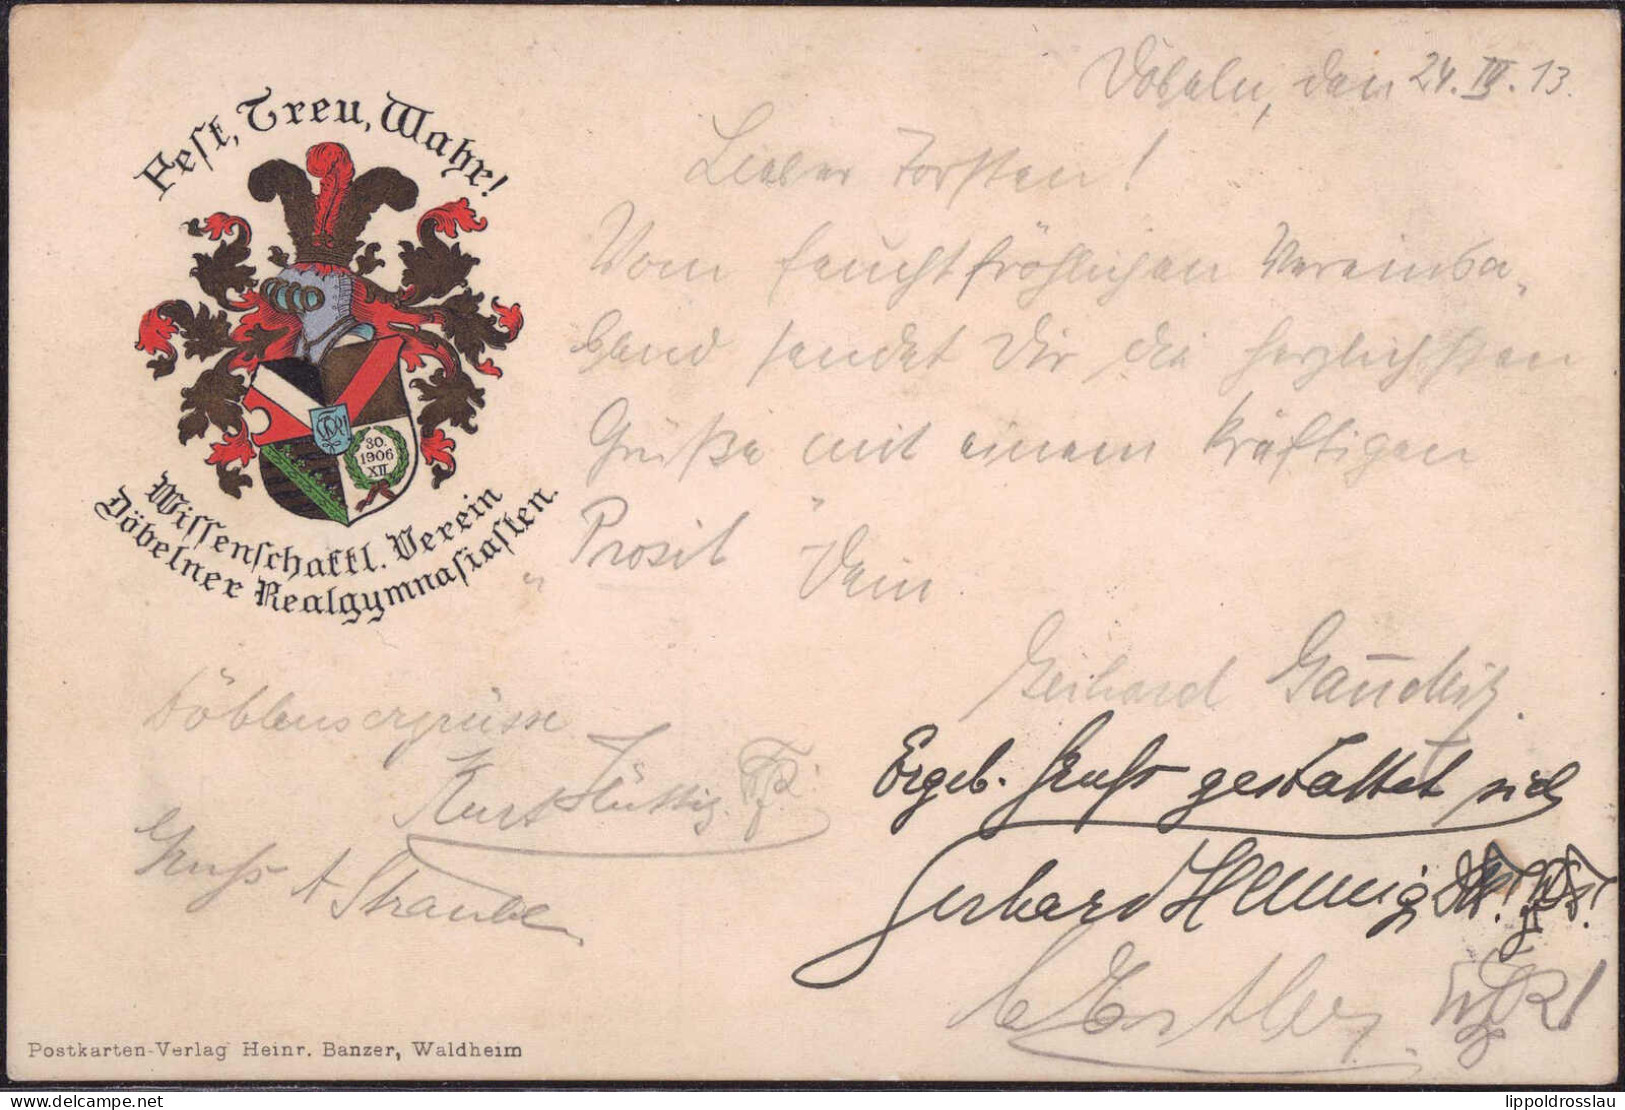 Döbeln, den 24. III. 13.
Fest, Treu, Wahr!
Lieber Torsten!
Vom feuchtfröhlichen Vereinsa-
bend sendet Dir die herzlichsten
Grüße mit einem kräftigen
„Prosit“ Dein
30.
1906
XII
Wissenschaftl. Verein
Döbelner Realgymnasiasten.
Gerhard
Kurt Hüttig
Ergeb. Gruß gestattet sich
Gerhard Hennig
Gruss A Straube
Postkarten-Verlag Heinr. Banzer, Waldheim
delcampe.net
lippoldroslau